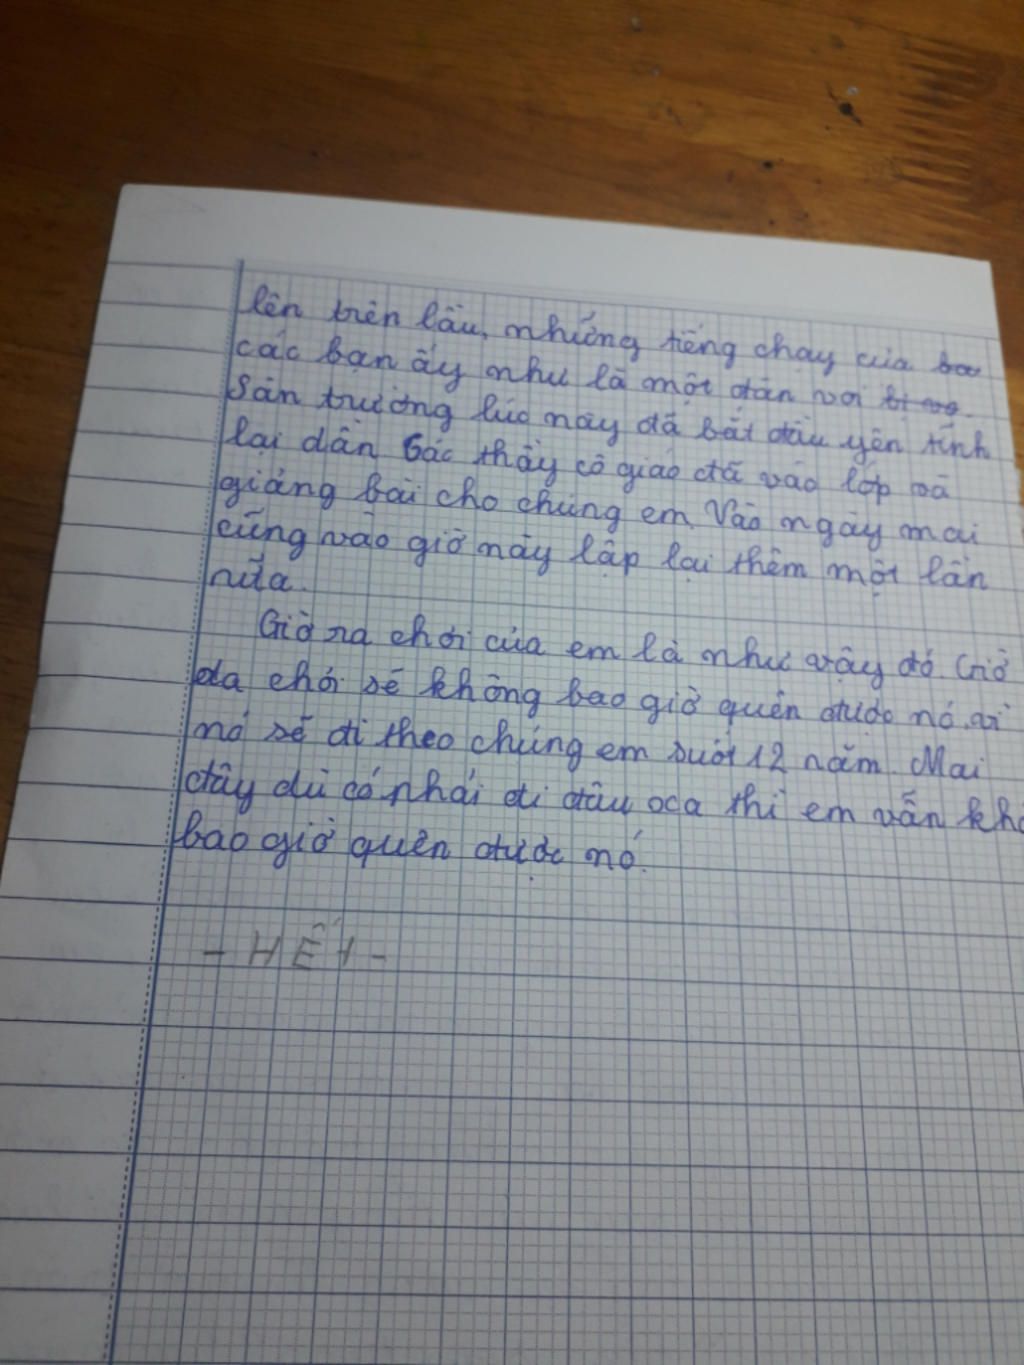 lên trên lầu, những tiếng chạy của
các bạn ấy như là một đàn voi
Sân trường lúc này đã bắt đầu yên tĩnh
lại dần Các thầy cô giáo đã vào lớp và
giảng bài cho chúng em. Vào ngày mai
cũng vào giờ này lặp lại thêm một lần
nữa.
Giờ ra chơi của em là như vậy đó. Giờ
ra chơi sẽ không bao giờ quên được nó. vì
nó sẽ đi theo chúng em suốt 12 năm. Mai
đây dù có phải đi đâu xa thì em vẫn khô
bao giờ quên được nó.
- HẾT -